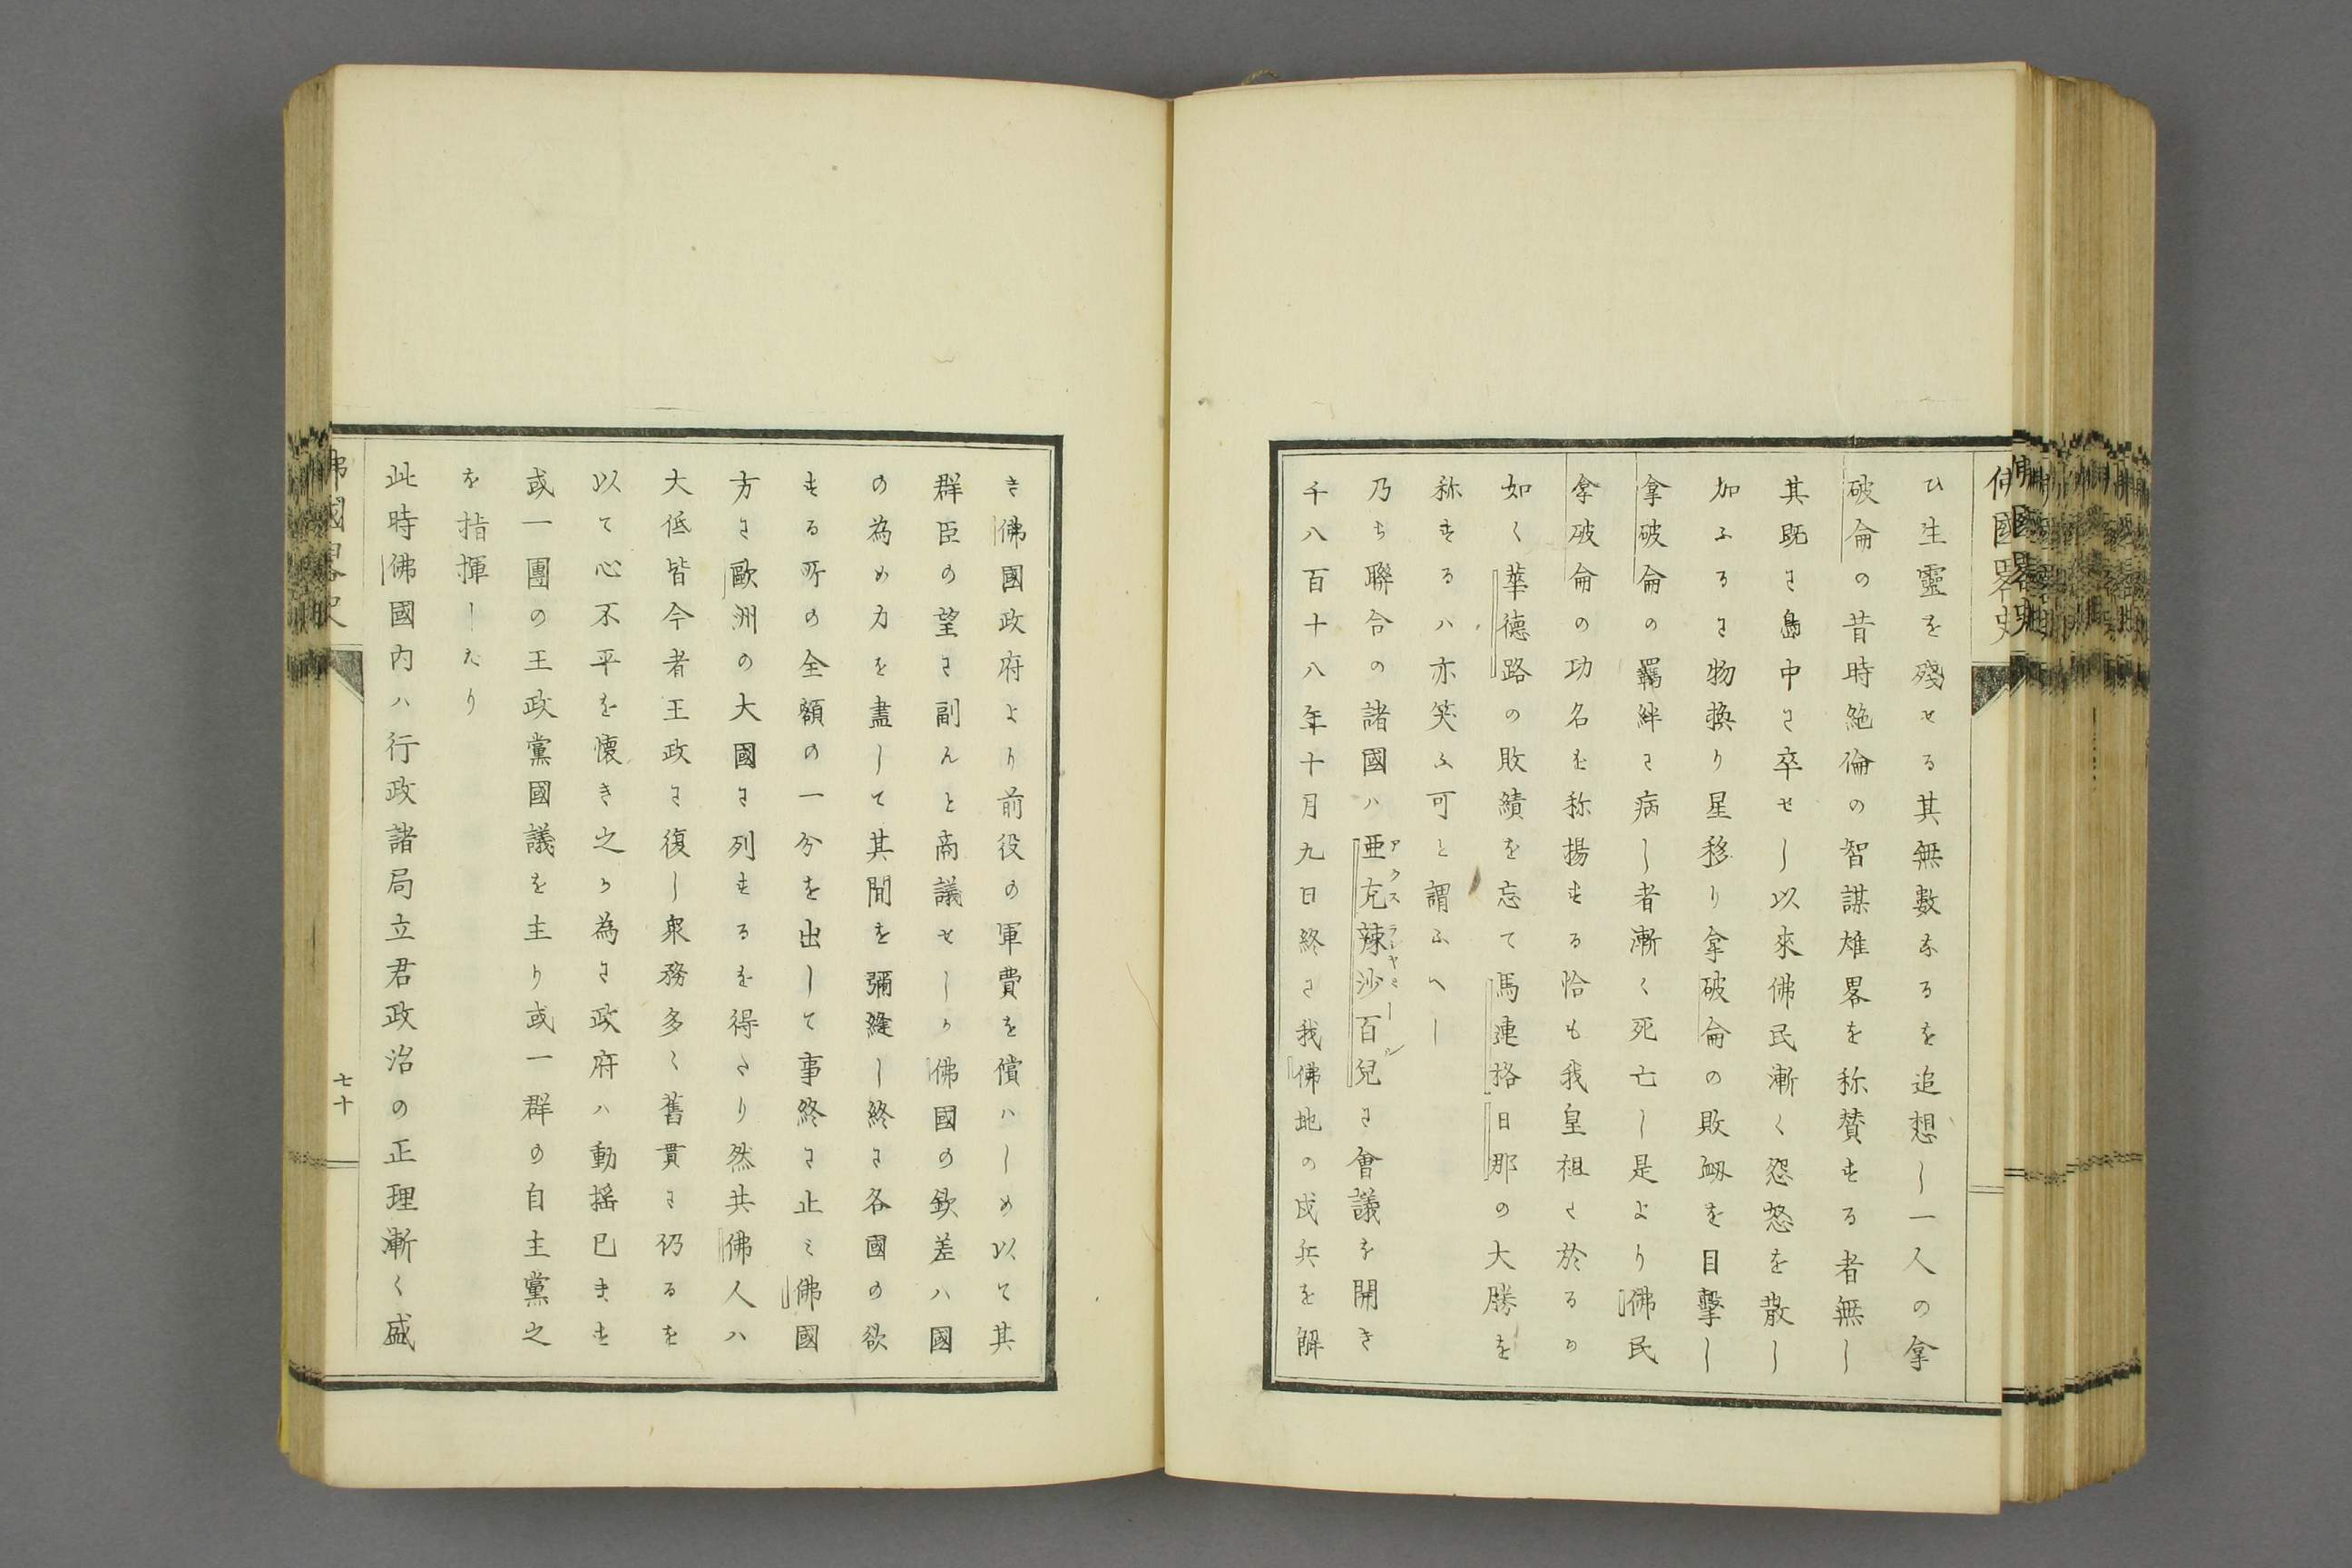 佛國畧史
ひ生靈を殘せる其無數なるを追想し一人の拿
破侖の昔時絶倫の智謀雄畧を称賛する者無し
其既に島中に卒せし以來佛民漸く怨怒を散し
加ふるに物換り星移り拿破侖の敗衂を目擊し
拿破侖の羈絆に病し者漸く死亡し是より佛民
拿破侖の功名を称揚する恰も我皇祖に於るか
如く華德路の敗績を忘て馬連格日那の大勝を
称するハ亦笑ふ可と謂ふへし
乃ち聯合の諸國ハ亜克辣沙百兒に會議を開き
アクスラシヤペール
千八百十八年十月九日終に我佛地の戍兵を解
き佛國政府より前役の軍費を償ハしめ以て其
群臣の望に副んと商議せしか佛國の欽差ハ國
の為め力を盡して其間を彌縫し終に各國の欲
する所の全額の一分を出して事終に止ミ佛國
方に歐洲の大國に列するを得たり然共佛人ハ
大低皆今者王政に復し衆務多く舊貫に仍るを
以て心不平を懷き之か為に政府ハ動揺已ます
或一團の王政黨國議を主り或一群の自主黨之
を指揮したり
此時佛國内ハ行政諸局立君政治の正理漸く盛
佛國畧史
七十